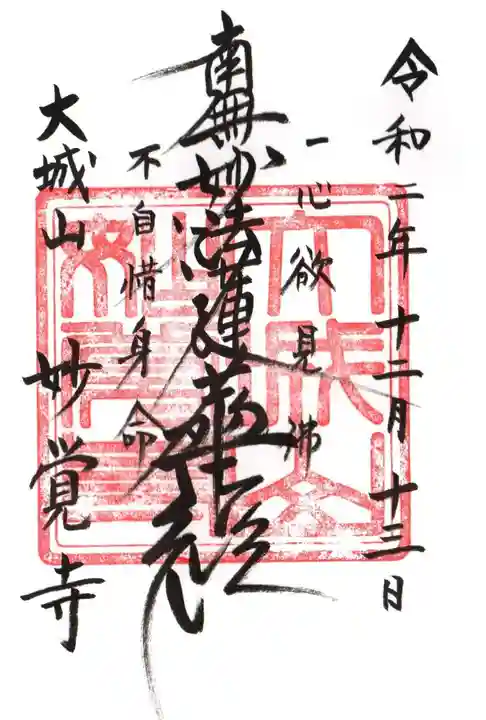 令和二年十二月十三日
一心欲見佛
南無妙法蓮華経
不自惜身命
大城山 妙覚寺